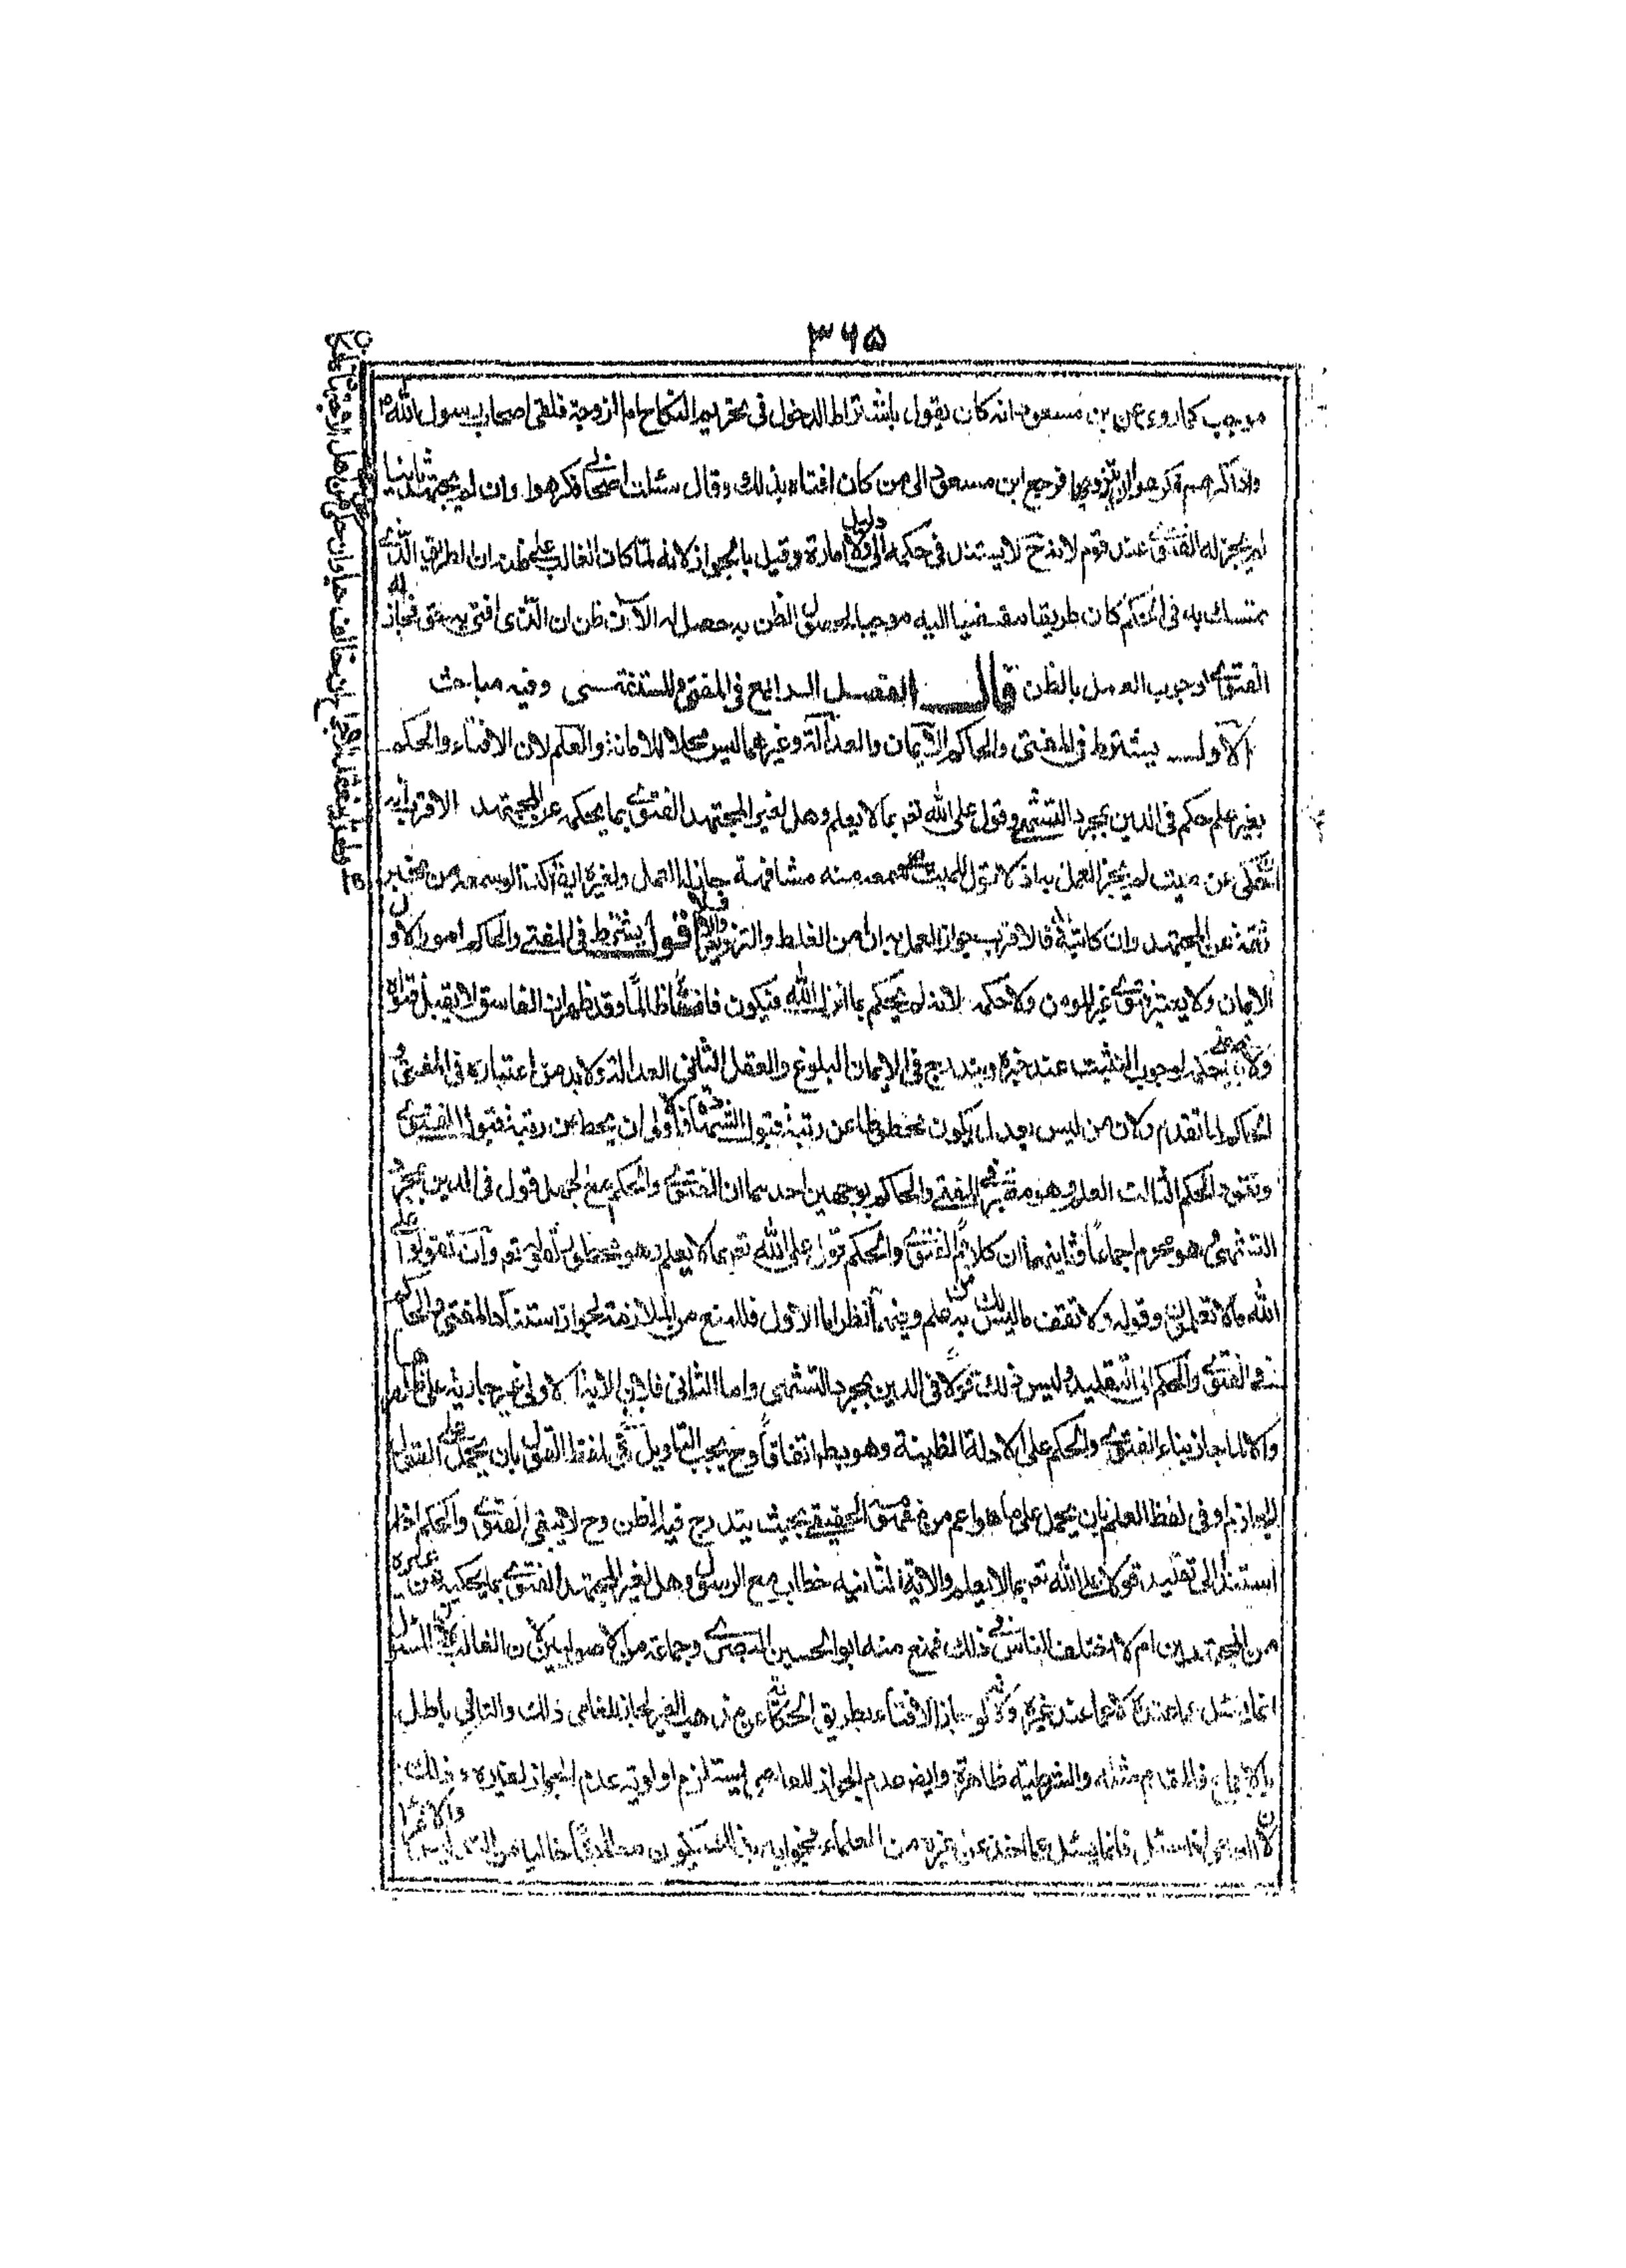 ٣٦٥
موجب كما روى عن بن مسعود انه كان يقول باشتراط الدخول فى تحريم النكاح ام الزوجة فلقى اصحاب رسول الله ص
وذاكرهم فكرهوا ان يتزوجها فرجع ابن مسعود الى من كان افتاه بذلك وقال سئلت اصحابى فكرهوا وان لم يجتهد ثانيا
لم يجز له الفتوى عند قوم لانه ح لا يستند فى حكمه الى دليل ولا امارة وقيل بالجواز لانه لما كان الغالب على ظنه ان الطريق الذى
يتمسك به فى الحكم كان طريقا مفضيا اليه موجبا لحصول الظن به حصل له الآن ظن ان الذى افتى به حق فجاز له
الفتوى لوجوب العمل بالظن قال الفصل الرابع فى المفتى والمستفتى وفيه مباحث
الاول يشترط فى المفتى والحاكم الايمان والعدالة وغيرهما ليس محلا للامانة والعلم لان الافتاء والحكم
بغير علم حكم فى الدين بمجرد التشهى وقول على الله تع بما لا يعلم وهل لغير المجتهد الفتوى بما يحكيه عن المجتهد الاقرب انه
ان حكى عن ميت لم يجز العمل به اذ لا قول للميت وان سمعه منه مشافهة جاز له العمل ولغيره ايضا وكذا لو سمعه من مخبر
ثقة عن المجتهد وان كاتبه فالاقرب جواز العمل به ان امن الغلط والتزوير والا فلا اقول يشترط فى المفتى والحاكم امور الاول
الايمان ولا يعتبر فتوى غير المومن ولا حكمه لانه لم يحكم بما انزل الله فيكون فاسقا ظالما وقد ظهر ان الفاسق لا يقبل فتواه
ولا يصح لوجوب التثبت عند خبره ويندرج فى الايمان البلوغ والعقل الثانى العدالة ولا بد من اعتباره فى المفتى و
الحاكم لما تقدم ولان من ليس بعدل يكون منحطا عن رتبة قبول الشهادة فاولى ان ينحط عن رتبة قبول الفتوى
ونفوذ الحكم الثالث العلم وهو معتبر فى المفتى والحاكم بوجهين احدهما ان الفتوى والحكم مع الجهل قول فى الدين بمجرد
التشهى وهو محرم اجماعا وثانيهما ان كلا من الفتوى والحكم قول على الله تع بما لا يعلم وهو محظور لقوله تع وان تقولوا على
الله ما لا تعلمون وقوله ولا تقف ما ليس لك به علم وفيهما نظر اما الاول فللمنع من الملازمة لجواز استناد المفتى والحاكم
فى الفتوى والحكم الى التقليد وليس ذلك قولا فى الدين بمجرد التشهى واما الثانى فلان الاية الاولى غير جارية على ظاهرها
والا لما جاز بناء الفتوى والحكم على الادلة الظنية وهو بط اتفاقا وح يجب التاويل اما فى لفظ القول بان يحمل على القول
اللوازم او فى لفظ العلم بان يحمل على ما هو اعم من مفهومه الحقيقى بحيث يندرج فيه الظن وح لا يبقى الفتوى والحكم اذا
استند الى تقليد قولا على الله تع بما لا يعلم والاية الثانية خطاب مع الرسول وهل لغير المجتهد الفتوى بما يحكيه عن غيره
من المجتهدين ام لا اختلف الناس فى ذلك فمنع منه ابو الحسين البصرى وجماعة من الاصوليين لان الغالب ان السئول
انما يسئل عما عنده لا عما عند غيره ولانه لو جاز الافتاء بطريق الحكاية عن مذهب الغير لجاز للعامى ذلك والتالى باطل
بالاجماع فالمقدم مثله والشرطية ظاهرة وايض عدم الجواز للعامى يستلزم اولوية عدم الجواز لغيره وذلك
لان العامى اذا سئل فانما يسئل عما اخذ عن غيره من العلماء فجوابه بذلك يكون مطابقا خاليا من التدليس والاغراء